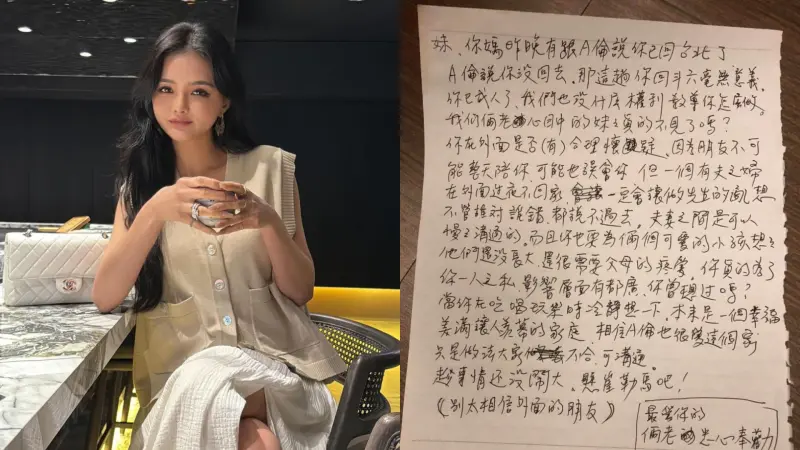 妹、你媽昨晚有跟A倫說你已回台北了
A倫說你沒回去、那這趟你回斗六毫無意義。
你已成人了、我們也没什么權利教導你怎麼做。
我們倆老心目中的妹々真的不見了嗎?
你在外面是否(有)合理懷 因為朋友不可
能整天陪你、可能也誤會你 但一個有夫之婦
在外面过夜不回家 一定會讓你先生的亂想
不管誰对誰錯.都說不過去。夫妻之間是可以
慢々溝通的。而且你也要為倆個可愛的小孩想々
他們還没長大.還很需要父母的疼愛。你真的為了
你一人之私.影響層面有都廣.你曾想过嗎?
當你在吃喝玩樂時冷靜想一下.本來是一個幸福
美滿讓人羨慕的家庭.相信A倫也很愛這個家
只是 大家 不合.可溝通。
趁事情还没鬧大。懸崖勒馬吧!
(別太相信外面的朋友)
最愛你的
倆老 忠心奉勸